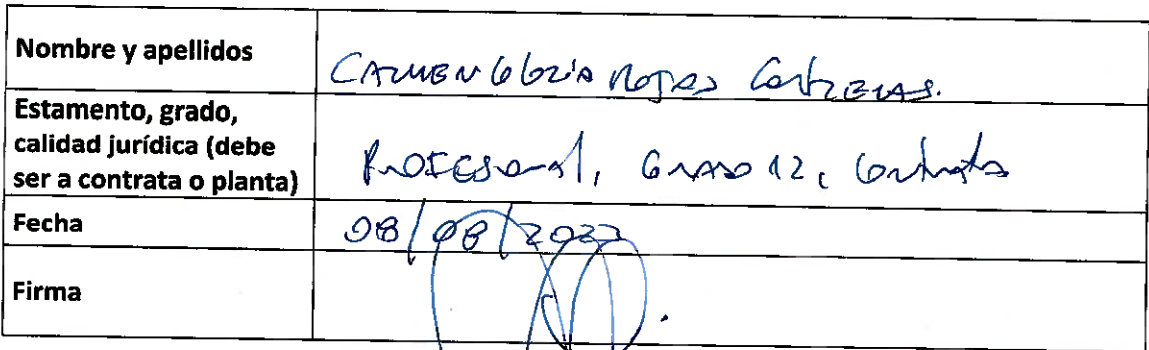 Nombre y apellidos
CARMEN Gloria Rojas CONTRERAS.
Estamento, grado,
calidad jurídica (debe
ser a contrata o planta)
PROFESional, GRADO 12, Contrata
Fecha
08/08/2022
Firma